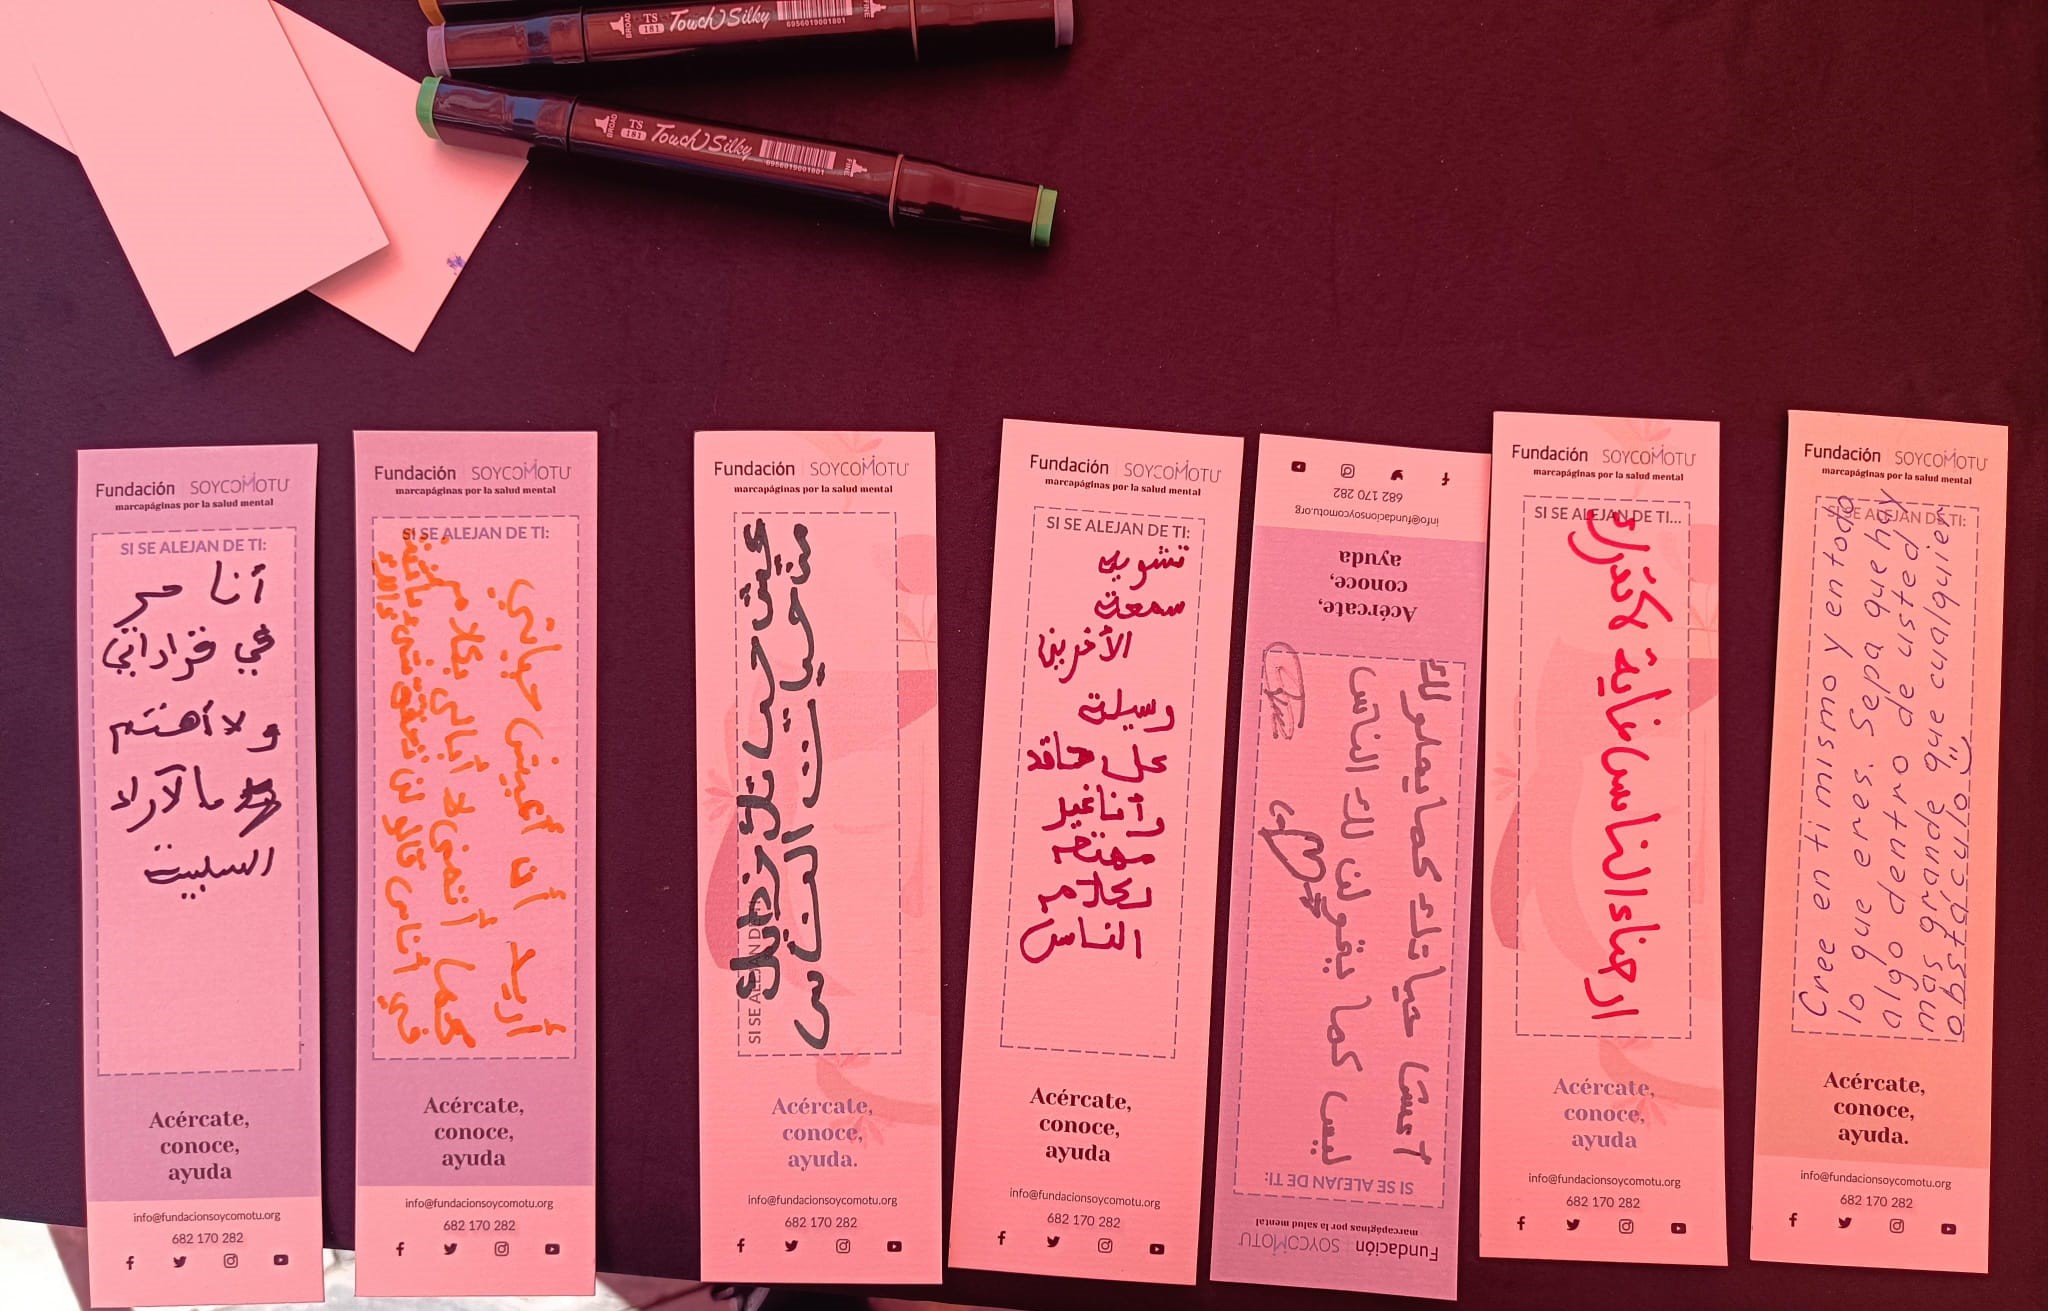 TS
181
Touch Silky
BROAD
FINE
6956019001801
TS
181
Touch Silky
BROAD
FINE
6956019001801
Fundación SOYCOMOTU
marcapáginas por la salud mental
SI SE ALEJAN DE TI:
أنا حر
في قراراتي
ولا أهتم
السلبية
Acércate,
conoce,
ayuda
info@fundacionsoycomotu.org
682 170 282
Fundación SOYCOMOTU
marcapáginas por la salud mental
SI SE ALEJAN DE TI:
أريد أن أعيش حياتي
لا أبالي بكلام
في أناس
Acércate,
conoce,
ayuda
info@fundacionsoycomotu.org
682 170 282
Fundación SOYCOMOTU
marcapáginas por la salud mental
SI SE ALEJAN DE TI:
عيش حياتك
Acércate,
conoce,
ayuda.
info@fundacionsoycomotu.org
682 170 282
Fundación SOYCOMOTU
marcapáginas por la salud mental
SI SE ALEJAN DE TI:
تشويه
سمعة
الأخرين
وسيلة
وأنا غير
مهتمة
لكلام
الناس
Acércate,
conoce,
ayuda
info@fundacionsoycomotu.org
682 170 282
Fundación SOYCOMOTU
marcapáginas por la salud mental
SI SE ALEJAN DE TI:
حياتك كما يحلو لك
ليس كما يقولن لك الناس
Acércate,
conoce,
ayuda
info@fundacionsoycomotu.org
682 170 282
Fundación SOYCOMOTU
marcapáginas por la salud mental
SI SE ALEJAN DE TI...
ارضاء الناس غاية لا تدرك
Acércate,
conoce,
ayuda
info@fundacionsoycomotu.org
682 170 282
Fundación SOYCOMOTU
marcapáginas por la salud mental
SI SE ALEJAN DE TI:
Cree en ti mismo y en todo
lo que eres. Sepa que hay
algo dentro de usted
más grande que cualquier
obstáculo
Acércate,
conoce,
ayuda.
info@fundacionsoycomotu.org
682 170 282